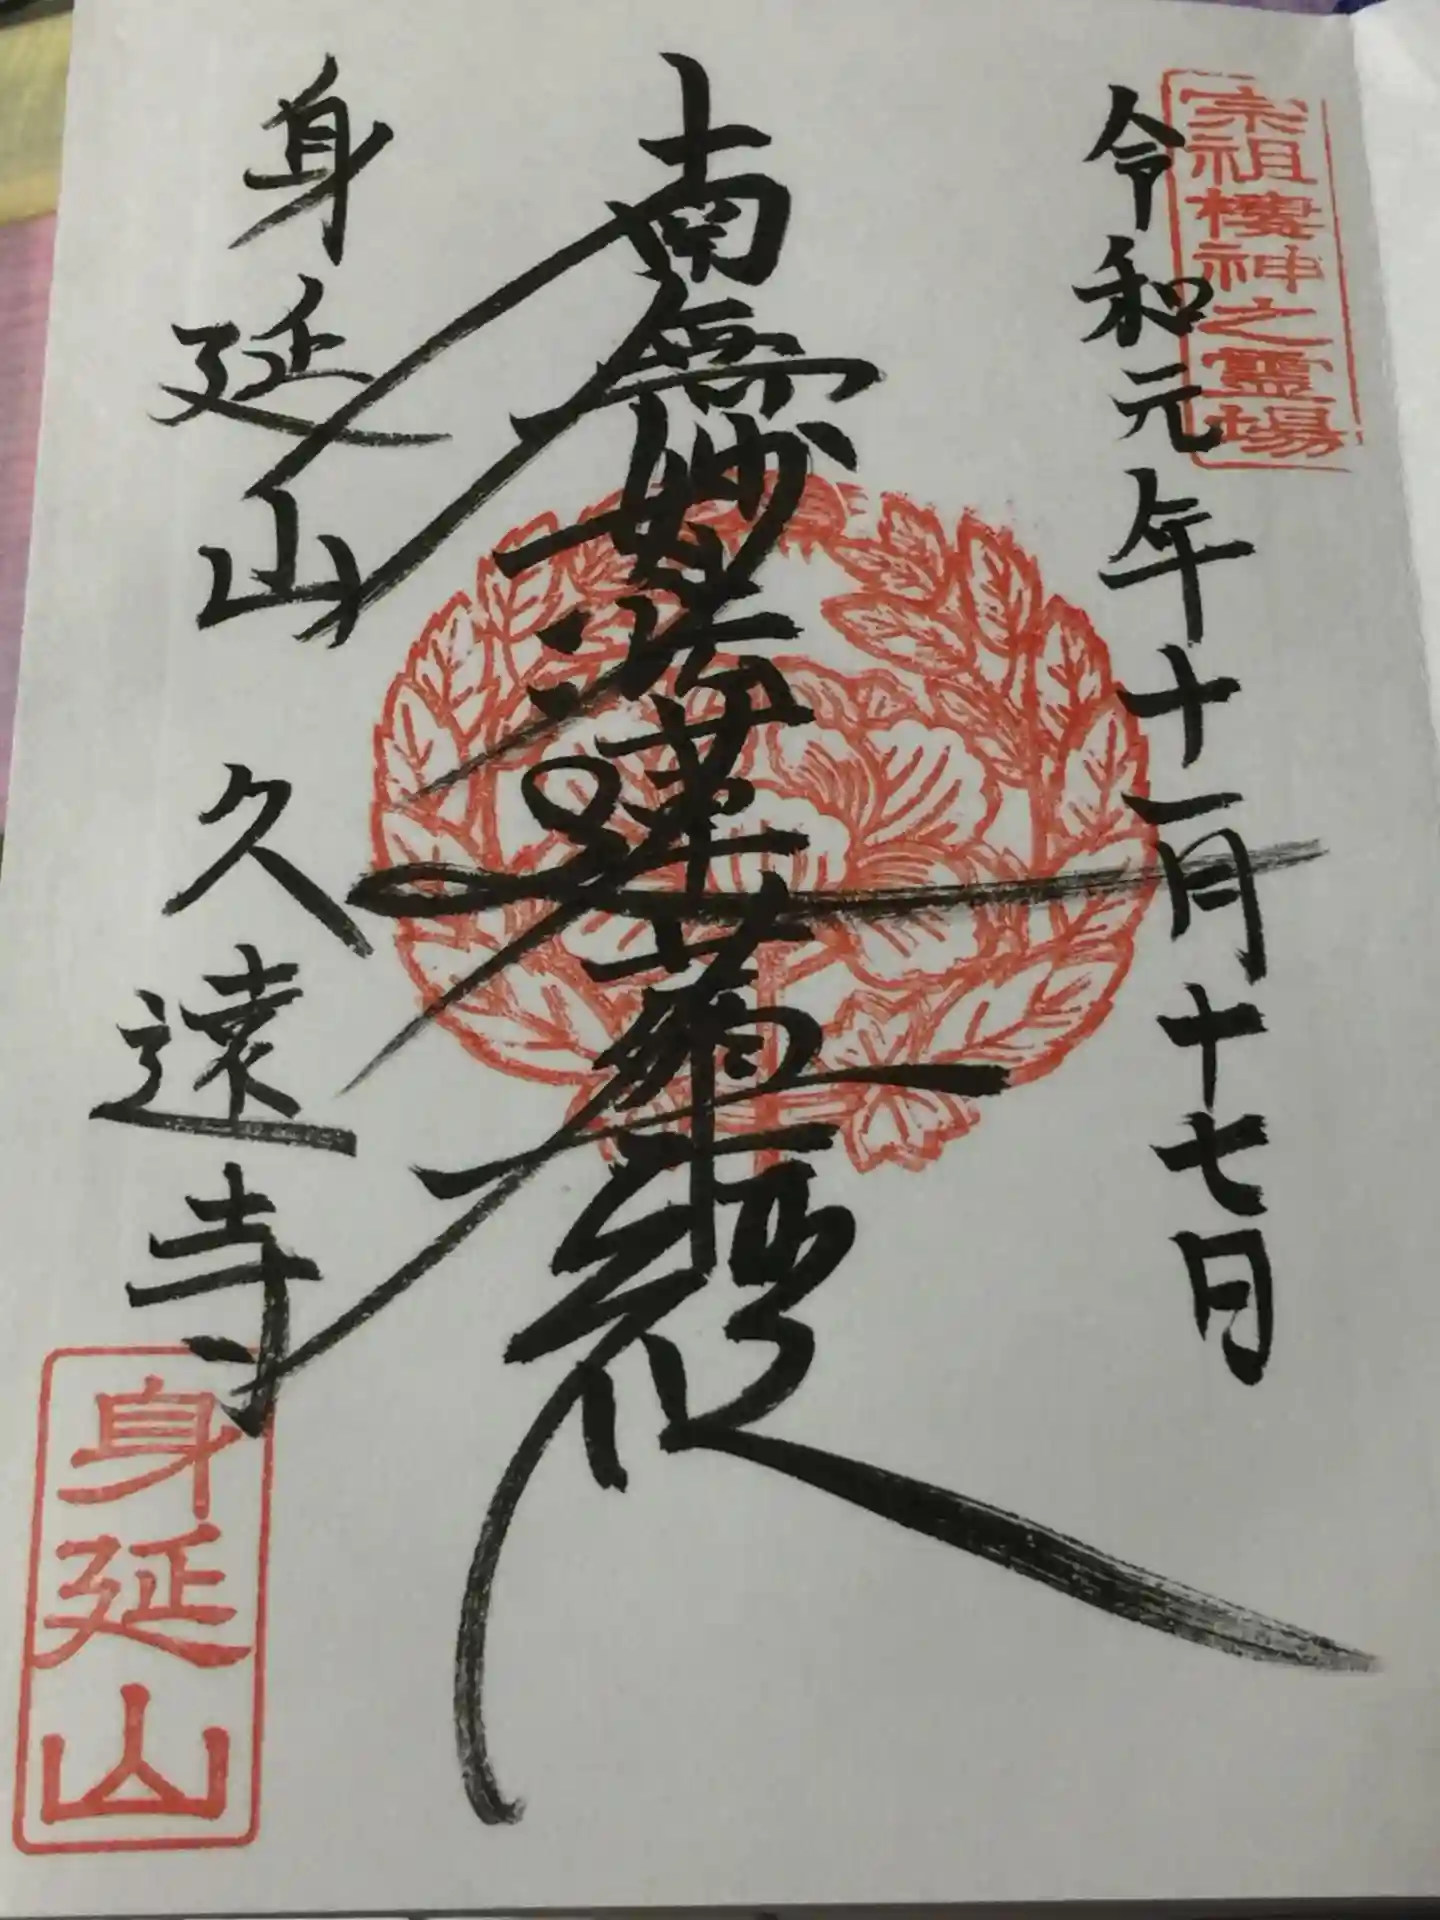 宗祖棲神之霊場
令和元年十一月十七日
南無妙法蓮華経
身延山 久遠寺
身延山